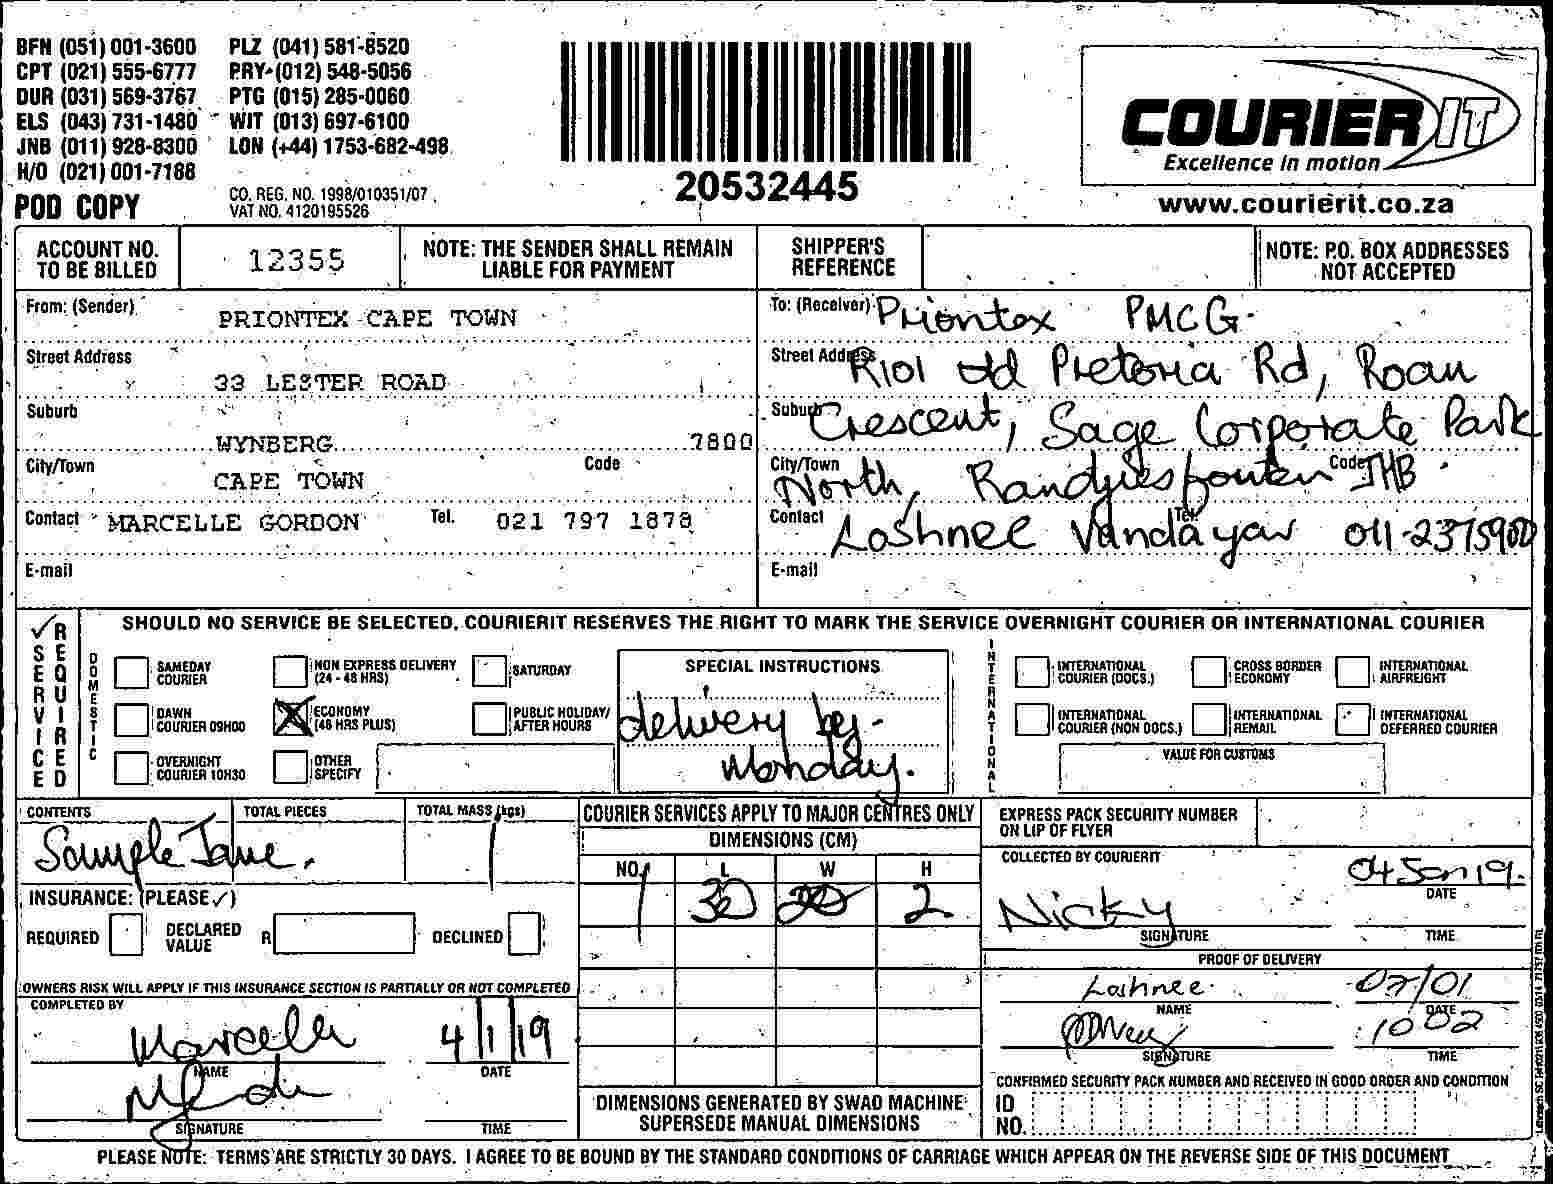 BFN (051) 001-3600 PLZ (041) 581-8520
CPT (021) 555-6777 PRY (012) 548-5056
DUR (031) 569-3767 PTG (015) 285-0060
ELS (043) 731-1480 WIT (013) 697-6100
JNB (011) 928-8300 LON (+44) 1753-682-498
H/O (021) 001-7188
POD COPY
CO. REG. NO. 1998/010351/07
VAT NO. 4120195526
20532445
COURIER IT
Excellence in motion
www.courierit.co.za
ACCOUNT NO. TO BE BILLED
12355
NOTE: THE SENDER SHALL REMAIN LIABLE FOR PAYMENT
SHIPPER'S REFERENCE
NOTE: P.O. BOX ADDRESSES NOT ACCEPTED
From: (Sender) PRIONTEX CAPE TOWN
Street Address
33 LESTER ROAD
Suburb
WYNBERG 7800
City/Town CAPE TOWN Code
Contact MARCELLE GORDON Tel. 021 797 1878
E-mail
To: (Receiver) Priontex PMCG.
Street Address R101 Old Pretoria Rd, Roan
Suburb Crescent, Sage Corporate Park
City/Town North, Randjiesfontein Code JHB
Contact Loshnee Vandayar Tel. 011-2375900
E-mail
SERVICE REQUIRED
SHOULD NO SERVICE BE SELECTED, COURIERIT RESERVES THE RIGHT TO MARK THE SERVICE OVERNIGHT COURIER OR INTERNATIONAL COURIER
DOMESTIC
SAMEDAY COURIER
NON EXPRESS DELIVERY (24 - 48 HRS)
SATURDAY
DAWN COURIER 09H00
ECONOMY (48 HRS PLUS)
PUBLIC HOLIDAY/ AFTER HOURS
OVERNIGHT COURIER 10H30
OTHER SPECIFY
SPECIAL INSTRUCTIONS
delivery by
Monday.
INTERNATIONAL
INTERNATIONAL COURIER (DOCS.)
CROSS BORDER ECONOMY
INTERNATIONAL AIRFREIGHT
INTERNATIONAL COURIER (NON DOCS.)
INTERNATIONAL REMAIL
INTERNATIONAL DEFERRED COURIER
VALUE FOR CUSTOMS
CONTENTS TOTAL PIECES TOTAL MASS (kgs)
Sample 1
INSURANCE: (PLEASE ✓)
REQUIRED DECLARED VALUE R DECLINED
OWNERS RISK WILL APPLY IF THIS INSURANCE SECTION IS PARTIALLY OR NOT COMPLETED
COMPLETED BY
Marcelle 4/1/19
NAME DATE
SIGNATURE TIME
COURIER SERVICES APPLY TO MAJOR CENTRES ONLY
DIMENSIONS (CM)
NO. L W H
1 30 20 2
DIMENSIONS GENERATED BY SWAD MACHINE SUPERSEDE MANUAL DIMENSIONS
EXPRESS PACK SECURITY NUMBER ON LIP OF FLYER
COLLECTED BY COURIERIT
04 Jan 19.
DATE
Nicky
SIGNATURE TIME
PROOF OF DELIVERY
Loshnee 07/01
NAME DATE
1002
SIGNATURE TIME
CONFIRMED SECURITY PACK NUMBER AND RECEIVED IN GOOD ORDER AND CONDITION
ID NO.
PLEASE NOTE: TERMS ARE STRICTLY 30 DAYS. I AGREE TO BE BOUND BY THE STANDARD CONDITIONS OF CARRIAGE WHICH APPEAR ON THE REVERSE SIDE OF THIS DOCUMENT